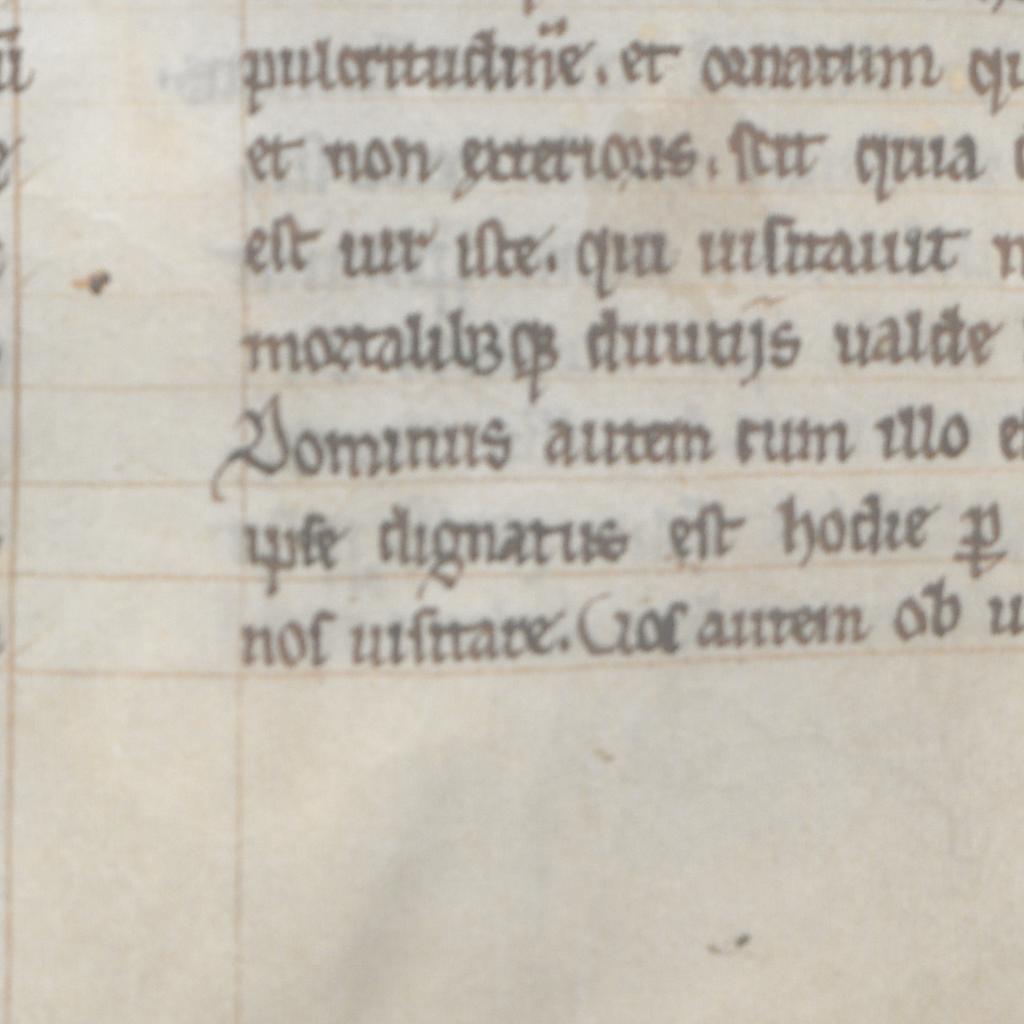 pulcritudinē. et ornatum
et non exterioris. scit quia
est uir iste. qui uisitauit
mortalibꝫqꝫ diuitijs ualde
Dominus autem cum illo
ipse dignatus est hodie ꝑ
nos uisitare. Uos autem ob